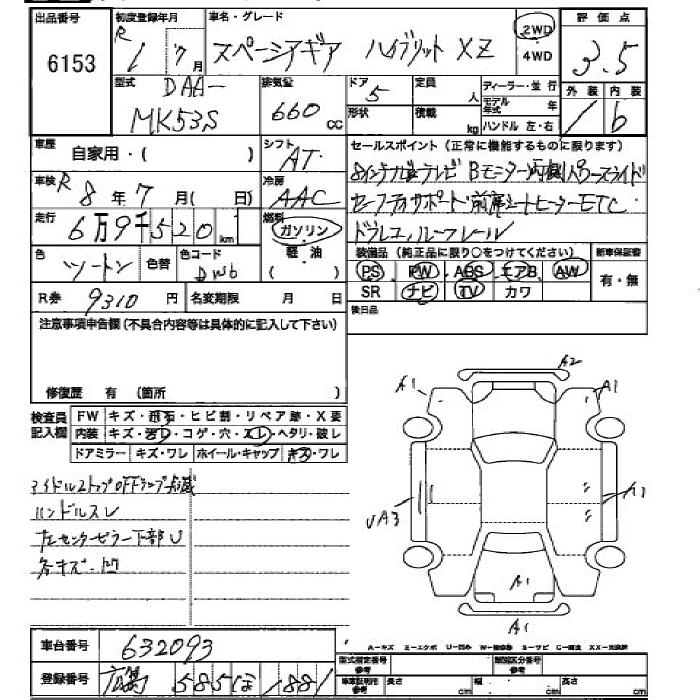 出品番号 初度登録年月 車名・グレード 評価点
6153 R 1 7月 スペーシアギア ハイブリット XZ 2WD 4WD 3.5
型式 DAA- MK53S 排気量 660 cc ドア 5 定員 人 ディーラー・並行 外装 内装
形状 積載 kg モデル年式 年 ハンドル 左・右 b
車歴 自家用・( ) シフト AT セールスポイント(正常に機能するものに限ります)
車検 R 8年 7月( 日) 冷房 AAC 8インチナビ テレビ Bモニター 両側パワースライド
走行 6万9千520km 燃料 ガソリン セーフティサポート 前席シートヒーター ETC
軽油 ( ) ドラレコ ルーフレール
色 ツートン 色替 色コード DW6 装備品(純正品に限り○をつけてください) 新車保証書
PS PW ABS エアB AW 有・無
R券 9310円 名変期限 月 日 SR ナビ TV カワ
注意事項申告欄(不具合内容等は具体的に記入して下さい) 後日品
修復歴 有 (箇所 )
検査員記入欄 FW キズ・飛石・ヒビ割・リペア跡・X要
内装 キズ・汚レ・コゲ・穴・スレ・ヘタリ・破レ
ドアミラー キズ・ワレ ホイール・キャップ キズ・ワレ
アイドルストップOFFランプ点滅
ハンドルスレ
左センターピラー下部U
各キズ・凹
A2
A1 A1
UA3 A1
A1
A1
A−キズ E−エクボ U−凹み W−補修跡 S−サビ C−腐食 XX−交換済
車台番号 632093 型式指定番号 参考 類別区分番号 参考
登録番号 広島 585 ほ 1881 車庫証明用 参考 長さ cm 幅 cm 高さ cm